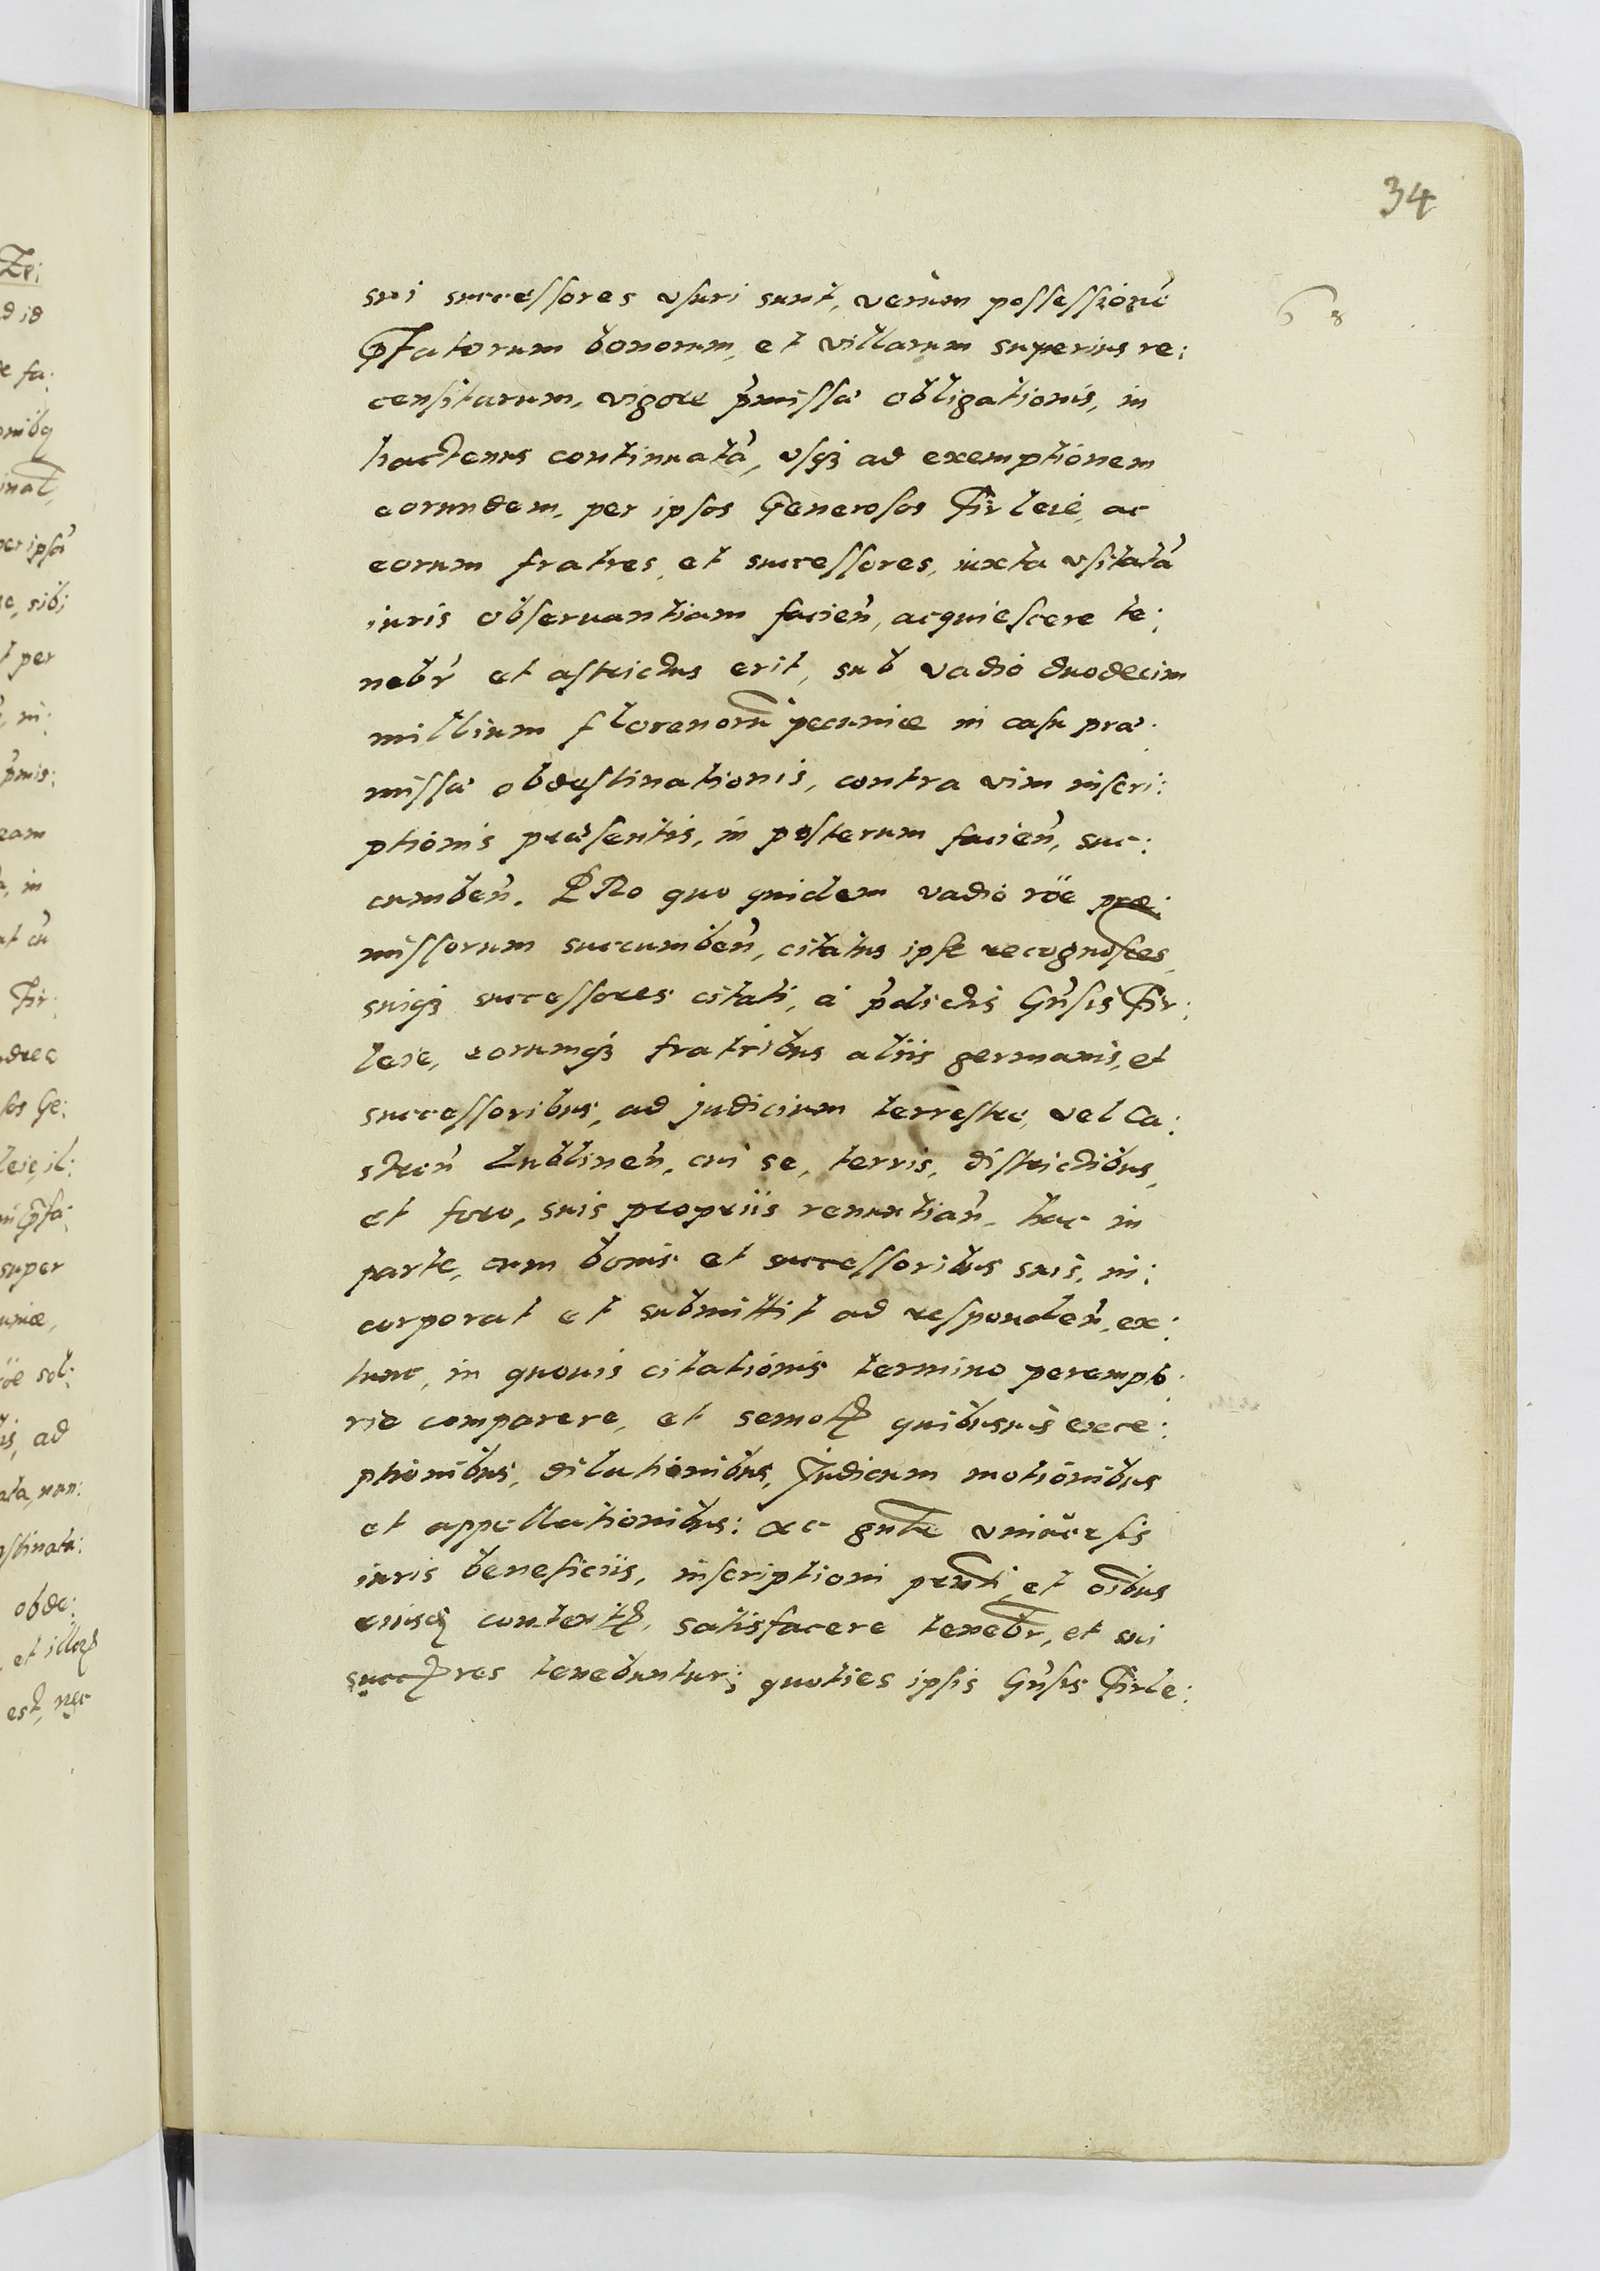 34
sui successores vsuri sunt, verum possessionẽ
p̃fatorum bonorum, et villarum superius re:
censitarum, vigore p̃missæ obligationis, in
hactenus continuatã, vsq₃ ad exemptionem
eorundem, per ipsos Generosos Firleie, ac
eorum fratres, et successores, iuxta vsitatã
iuris obseruantiam facień, acquiescere te:
nebr̃ et astrictus erit, sub vadio duodecim
millium florenorũ pecuniæ in casu præ:
missæ obdestinationis, contra vim inscri:
ptionis præsentis, in posterum facień, suc:
cumbeń. PRo quo quidem vadio rõe præ:
missorum succumbeń, citatus ipse recognosces,
suiq₃ successores citati, à p̃dictis Gñsis Fir:
leie, eorumq₃ fratribus aliis germanis, et
successoribus, ad judicium terrestre, vel Ca:
streń Lublineń, cui se, terris, districtibus,
et foro, suis propriis renuntiań, hac in
parte, cum bonis et successoribus suis, in:
corporat et submittit ad respondeń, ex:
tunc, in quouis citationis termino perempto:
rie comparere, et semotꝭ quibusuis exce:
ptionibus, dilationibus, Judicum motionibus
et appellationibus: ac gñte vniuersis
iuris beneficiis, inscriptioni prñti, et oĩbus
eiusq₃ contentꝭ, satisfacere tenebr̃, et sui
succꝭres tenebuntur; quoties ipsis Gñsis Firle: